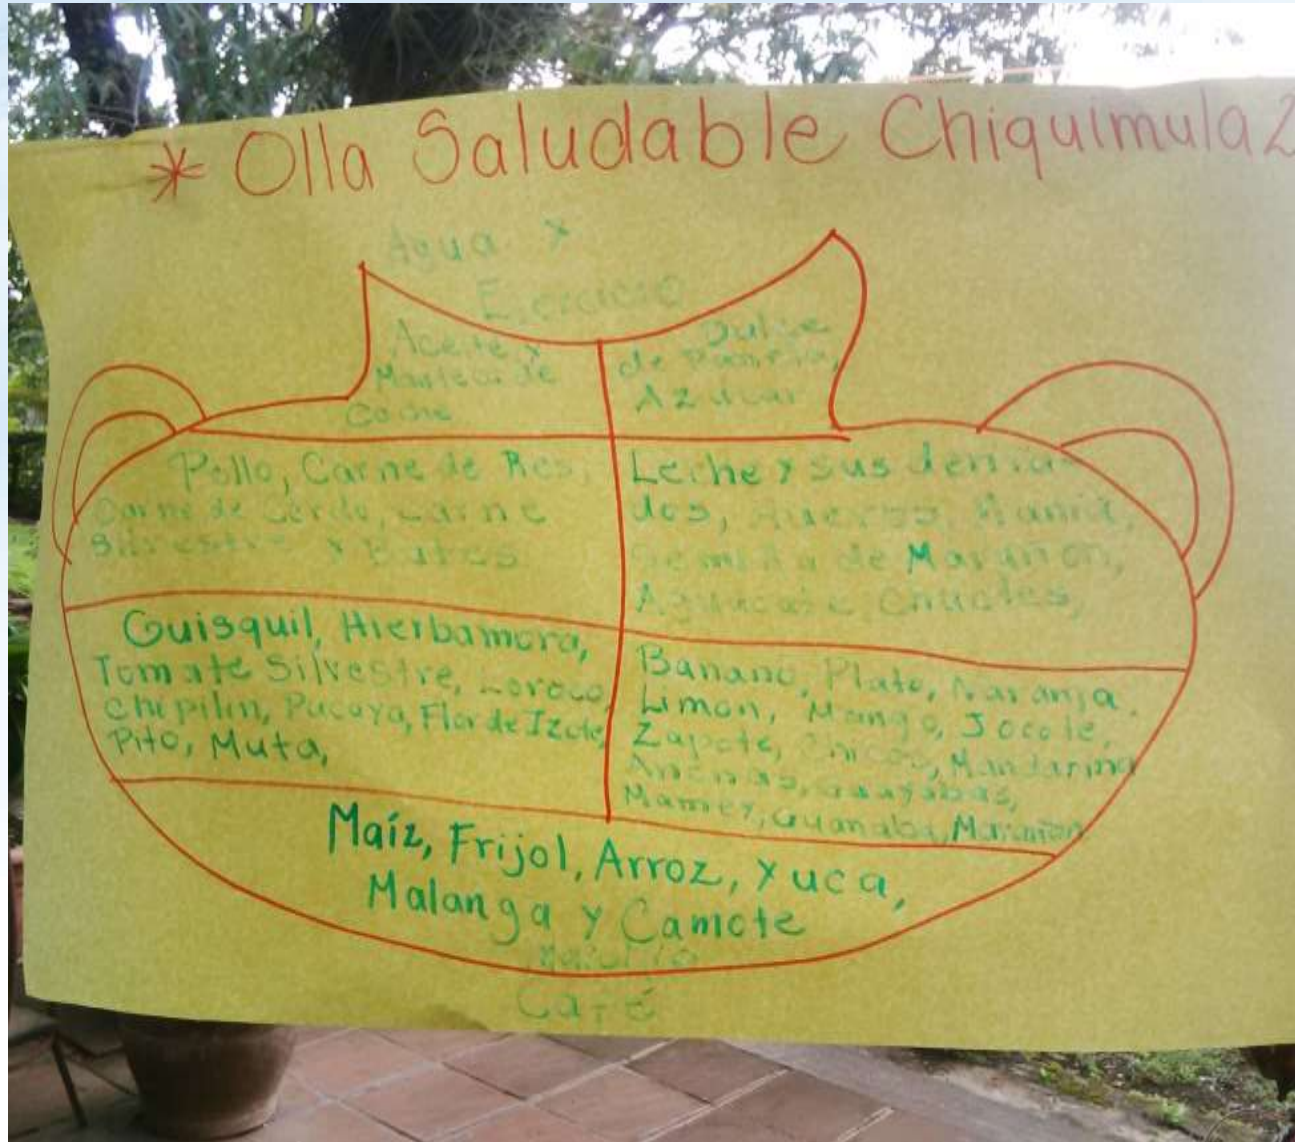 * Olla Saludable Chiquimula 2
Agua y
Ejercicio
Aceite y
Manteca de
Coche
Dulce
de Panela,
Azucar
Pollo, Carne de Res,
Carne de Cerdo, carne
Silvestre y
Leche y sus deriva
dos, Huevos,
Semilla de Marañon,
Aguacate,
Guisquil, Hierbamora,
Tomate Silvestre, Loroco,
Chipilin, Pacaya, Flor de Izote,
Pito, Muta,
Banano, Plato, Naranja,
Limon, Mango, Jocote,
Zapote, Chicos, Mandarina
Anonas, Guayabas,
Mamey, Guanaba, Marañon
Maíz, Frijol, Arroz, Yuca,
Malanga y Camote
Café